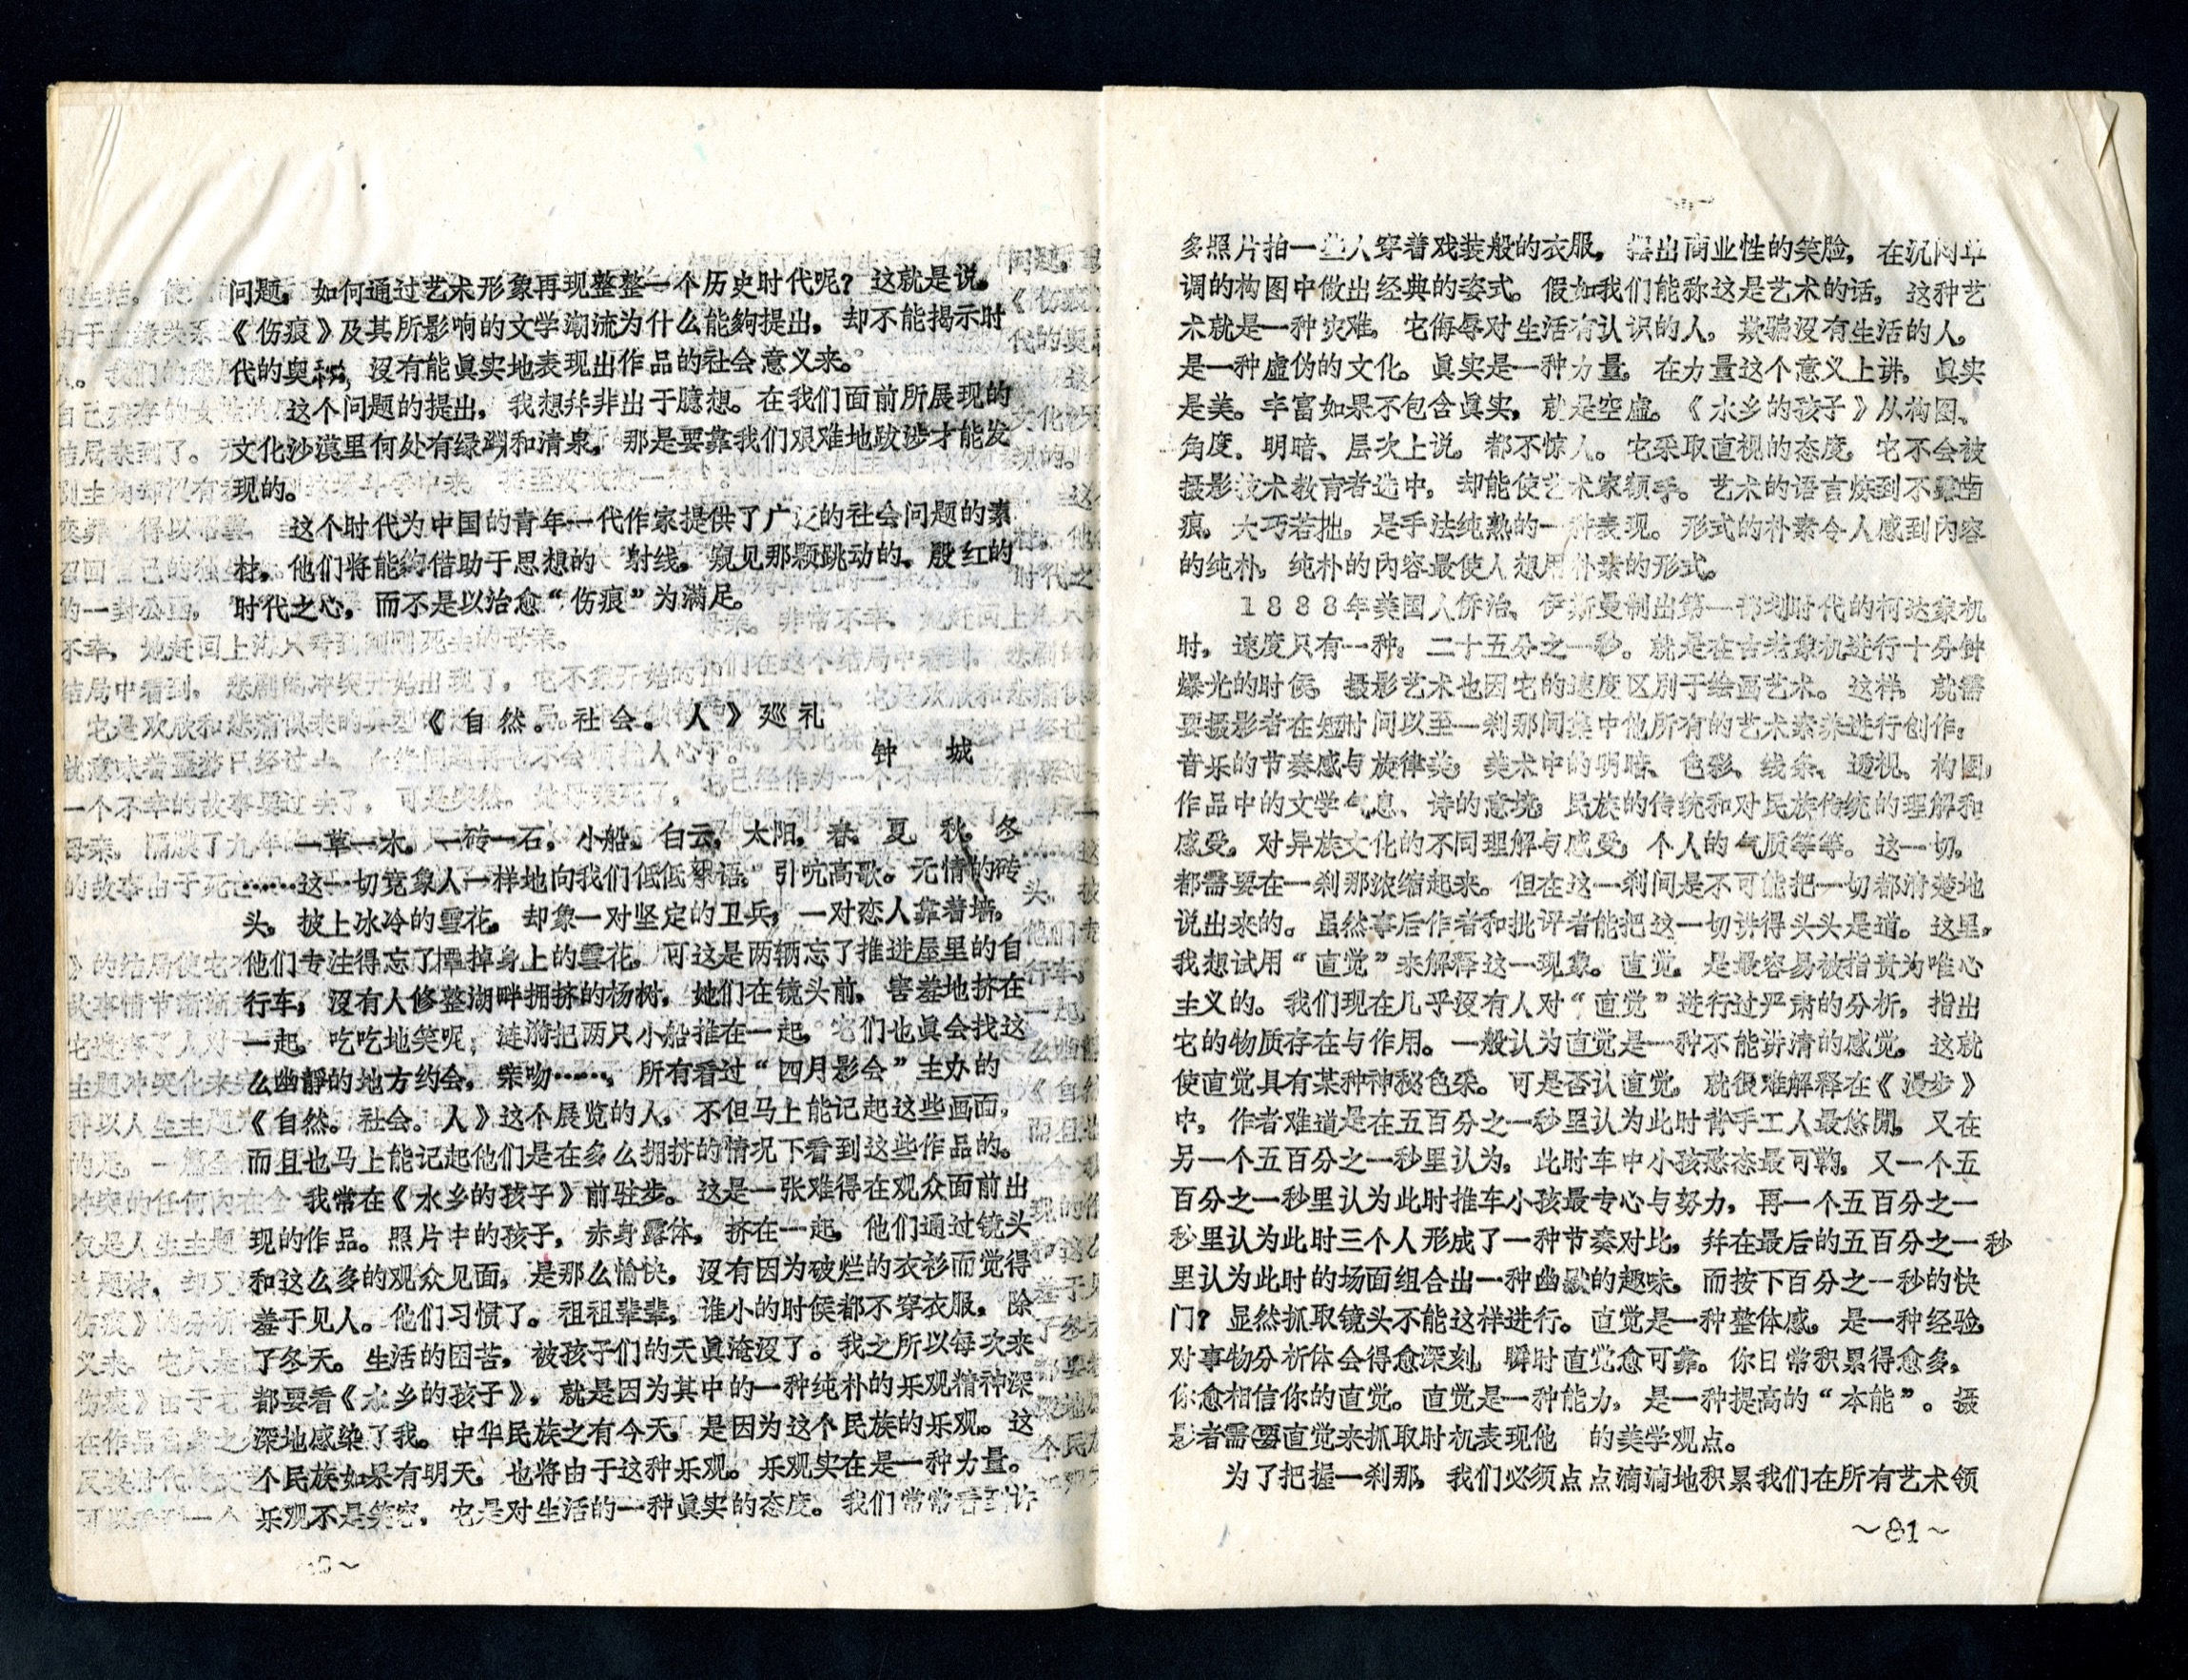 问题，如何通过艺术形象再现整整一个历史时代呢？这就是说，
《伤痕》及其所影响的文学潮流为什么能夠提出，却不能揭示时
代的奥秘，沒有能眞实地表现出作品的社会意义来。
这个问题的提出，我想幷非出于臆想。在我们面前所展现的
文化沙漠里何处有绿洲和清泉，那是要靠我们艰难地跋涉才能发
现的。
这个时代为中国的青年一代作家提供了广泛的社会问题的素
材，他们将能夠借助于思想的 射线，窥见那颗跳动的、殷红的
时代之心，而不是以治愈“伤痕”为满足。
《自然。社会。人》廵礼
钟 城
一草一木，一砖一石，小船，白云，太阳，春，夏，秋，冬
……这一切竟象人一样地向我们低低絮语，引吭高歌。无情的砖
头，披上冰冷的雪花，却象一对坚定的卫兵；一对恋人靠着墙，
他们专注得忘了撣掉身上的雪花，可这是两辆忘了推进屋里的自
行车；沒有人修整湖畔拥挤的杨树，她们在镜头前，害羞地挤在
一起，吃吃地笑呢；涟漪把两只小船推在一起，它们也眞会找这
么幽靜的地方约会，亲吻……，所有看过“四月影会”主办的
《自然。社会。人》这个展览的人，不但马上能记起这些画面，
而且也马上能记起他们是在多么拥挤的情况下看到这些作品的。
我常在《水乡的孩子》前驻步。这是一张难得在观众面前出
现的作品。照片中的孩子，赤身露体，挤在一起，他们通过镜头
和这么多的观众见面，是那么愉快，沒有因为破烂的衣衫而觉得
羞于见人。他们习惯了。祖祖辈辈，谁小的时候都不穿衣服，除
了冬天。生活的困苦，被孩子们的天眞淹沒了。我之所以每次来
都要看《水乡的孩子》，就是因为其中的一种纯朴的乐观精神深
深地感染了我。中华民族之有今天，是因为这个民族的乐观。这
个民族如果有明天，也将由于这种乐观。乐观实在是一种力量。
乐观不是笑容，它是对生活的一种眞实的态度。我们常常看到许
多照片拍一些人穿着戏装般的衣服，摆出商业性的笑脸，在沉闷单
调的构图中做出经典的姿式。假如我们能称这是艺术的话，这种艺
术就是一种灾难，它侮辱对生活有认识的人，欺骗沒有生活的人，
是一种虚伪的文化。眞实是一种力量，在力量这个意义上讲，眞实
是美。丰富如果不包含眞实，就是空虚。《水乡的孩子》从构图、
角度、明暗、层次上说，都不惊人。它采取直视的态度，它不会被
摄影技术教育者选中，却能使艺术家额手。艺术的语言炼到不露齿
痕，大巧若拙，是手法纯熟的一种表现。形式的朴素令人感到内容
的纯朴，纯朴的内容最使人想用朴素的形式。
1888年美国人侨治、伊斯曼制出第一部划时代的柯达象机
时，速度只有一种：二十五分之一秒。就是在古老象机进行十分钟
爆光的时侯，摄影艺术也因它的速度区别于绘画艺术。这样，就需
要摄影者在短时间以至一刹那间集中他所有的艺术素养进行创作：
音乐的节奏感与旋律美；美术中的明暗、色彩、线条、透视、构图；
作品中的文学气息、诗的意境；民族的传统和对民族传统的理解和
感受，对异族文化的不同理解与感受；个人的气质等等。这一切，
都需要在一刹那浓缩起来。但在这一刹间是不可能把一切都清楚地
说出来的。虽然事后作者和批评者能把这一切讲得头头是道。这里，
我想试用“直觉”来解释这一现象。直觉，是最容易被指责为唯心
主义的。我们现在几乎沒有人对“直觉”进行过严肃的分析，指出
它的物质存在与作用。一般认为直觉是一种不能讲清的感觉，这就
使直觉具有某种神秘色采。可是否认直觉，就很难解释在《漫步》
中，作者难道是在五百分之一秒里认为此时背手工人最悠閒，又在
另一个五百分之一秒里认为，此时车中小孩憨态最可鞠，又一个五
百分之一秒里认为此时推车小孩最专心与努力，再一个五百分之一
秒里认为此时三个人形成了一种节奏对比，幷在最后的五百分之一秒
里认为此时的场面组合出一种幽默的趣味，而按下百分之一秒的快
门？显然抓取镜头不能这样进行。直觉是一种整体感，是一种经验，
对事物分析体会得愈深刻，瞬时直觉愈可靠。你日常积累得愈多，
你愈相信你的直觉。直觉是一种能力，是一种提高的“本能”。摄
影者需要直觉来抓取时机表现他 的美学观点。
为了把握一刹那，我们必须点点滴滴地积累我们在所有艺术领
～81～